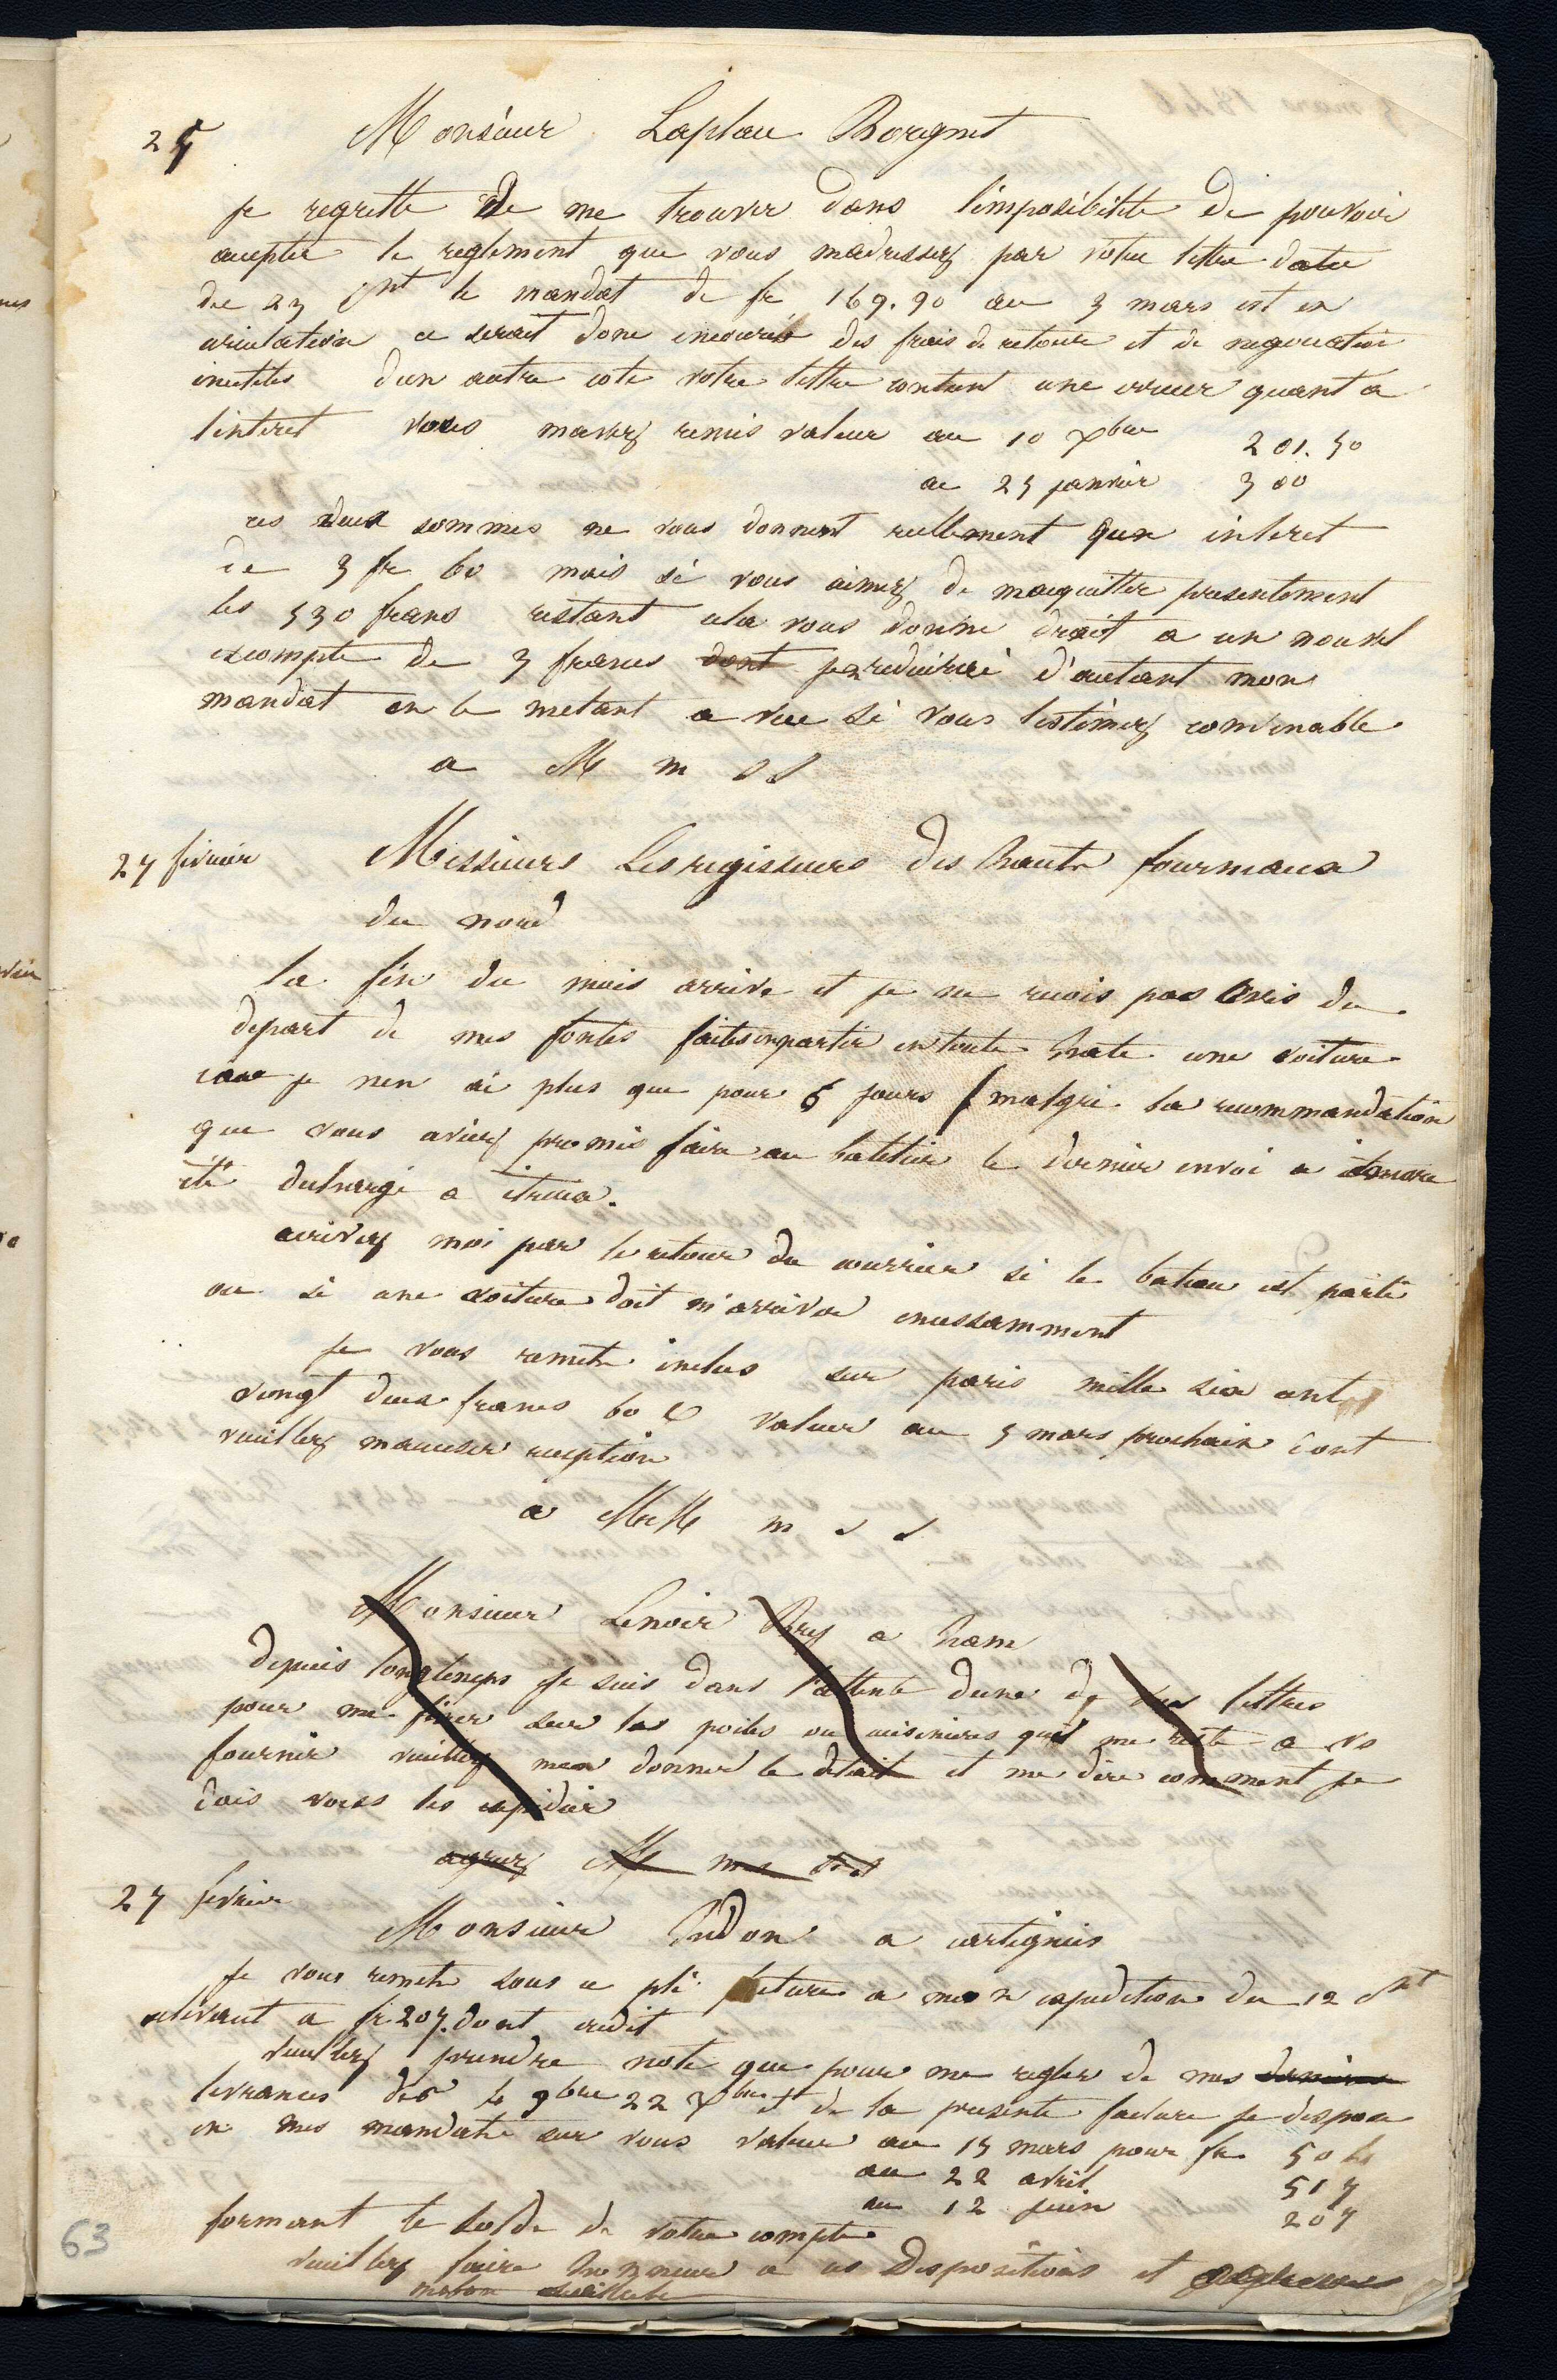 25 Monsieur Laplau Borgnet
je regrette de me trouver dans l'imposibilite de pouvoir
accepter le reglement que vous madressez par votre lettre datee
du 23 Ct le mandat de fr 169.90 au 3 mars est en
circulation ce serait donc encourir des frais de retour et de negociation
inutiles d'un autre cote votre lettre contient une erreur quant a
l'interet vous mavez remis valeur au 10 Xbre 201.50
au 25 janvier 300
ces deux sommes ne vous donnent reellement qun interet
de 3 fr 60 mais si vous aimez de macquitter presentement
les 530 frans restant cela vous donne droit a un nouvel
escompte de 3 francs dont je reduirai d'autant mon
mandat en le metant a vue si vous lestimez convenable
a M m s s
27 fevrier Messieurs Les regisseurs des hauts fourneaux
du nord
la fin du mois arrive et je ne recois pas avis du
depart de mes fontes faites en partir en toute hate une voiture
car je nen ai plus que pour 6 jours malgre la recommandation
que vous aviez promis faire au batelier le dernier envoi a encore
été decharge a etreux.
ecrivez moi par le retour du courrier si le bateau est parti
ou si une voiture doit m'arriver incessamment
je vous remets inclus sur paris mille six cents
vingt deux francs 60 c valeur au 5 mars prochain dont
veuillez maccuser reception
a MM m s s
Monsieur Lenoir Bry a ham
depuis longtemps je suis dans l'attente dune de vos lettres
pour me fixer sur les poiles ou cuisinieres quil me reste a vs
fournir veuillez men donner le detail et me dire comment je
dois vous les expedier
agreez M mes
27 fevrier
Monsieur hudon a cartignies
je vous remets sous ce pli facture a mon expedition du 12 Ct
selevant a fr. 207. dont credit
veuillez prendre note que pour me regler de mes dernieres
livrances des 4 9bre 22 Xbre et de la presente facture je dispose
en mes mandats sur vous valeur au 15 mars pour fr 504
au 22 avril 517
au 12 juin 207
formant le solde de votre compte
veuillez faire honneur a ces dispositions et
63